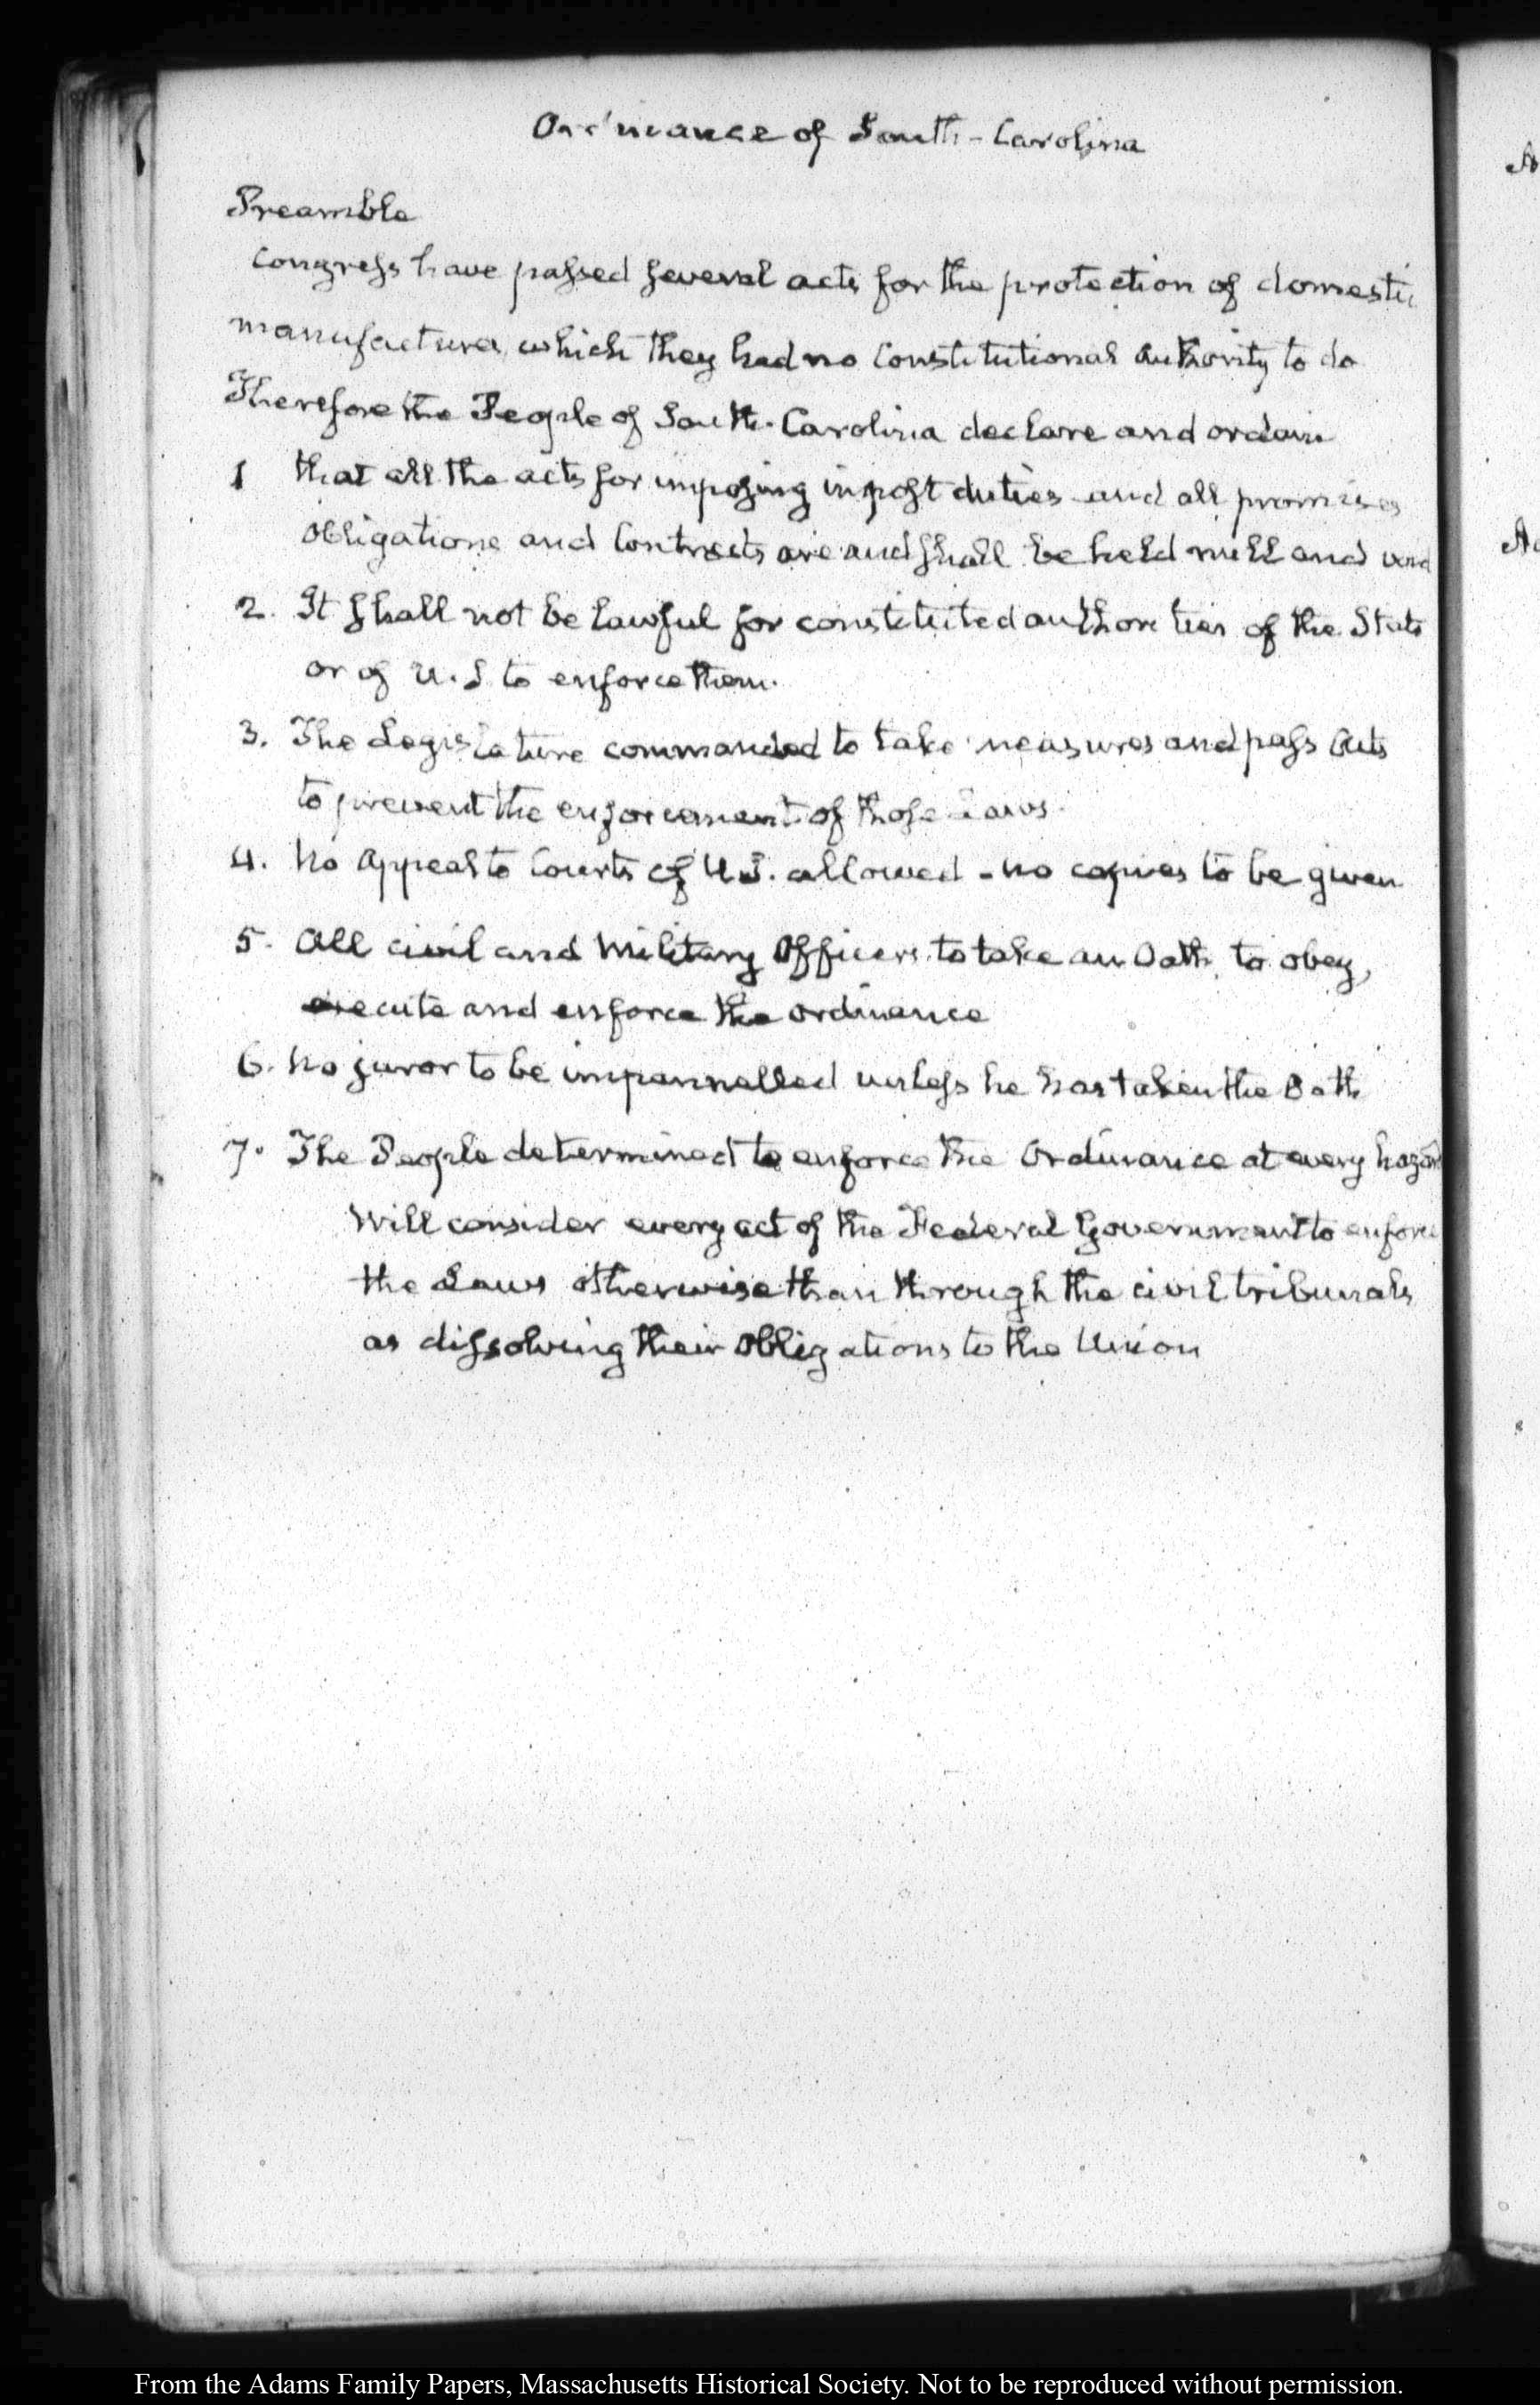 Ordinance of South-Carolina
Preamble
Congress have passed several acts for the protection of domestic
manufactures, which they had no Constitutional authority to do
Therefore the People of South-Carolina declare and ordain
1 that all the acts for imposing impost duties and all promises
obligations and Contracts are and shall be held null and void
2. It shall not be lawful for constituted authorities of the State
or of U.S to enforce them.
3. The Legislature commanded to take measures and pass Acts
to prevent the enforcement of those Laws.
4. No Appeal to Courts of U.S. allowed - no copies to be given
5. All civil and Military Officers to take an Oath to obey,
execute and enforce the ordinance
6. No juror to be impannelled unless he has taken the Oath
7. The People determined to enforce the Ordinance at every hazard
Will consider every act of the Federal Government to enforce
the Laws otherwise than through the civil tribunals
as dissolving their obligations to the Union
From the Adams Family Papers, Massachusetts Historical Society. Not to be reproduced without permission.